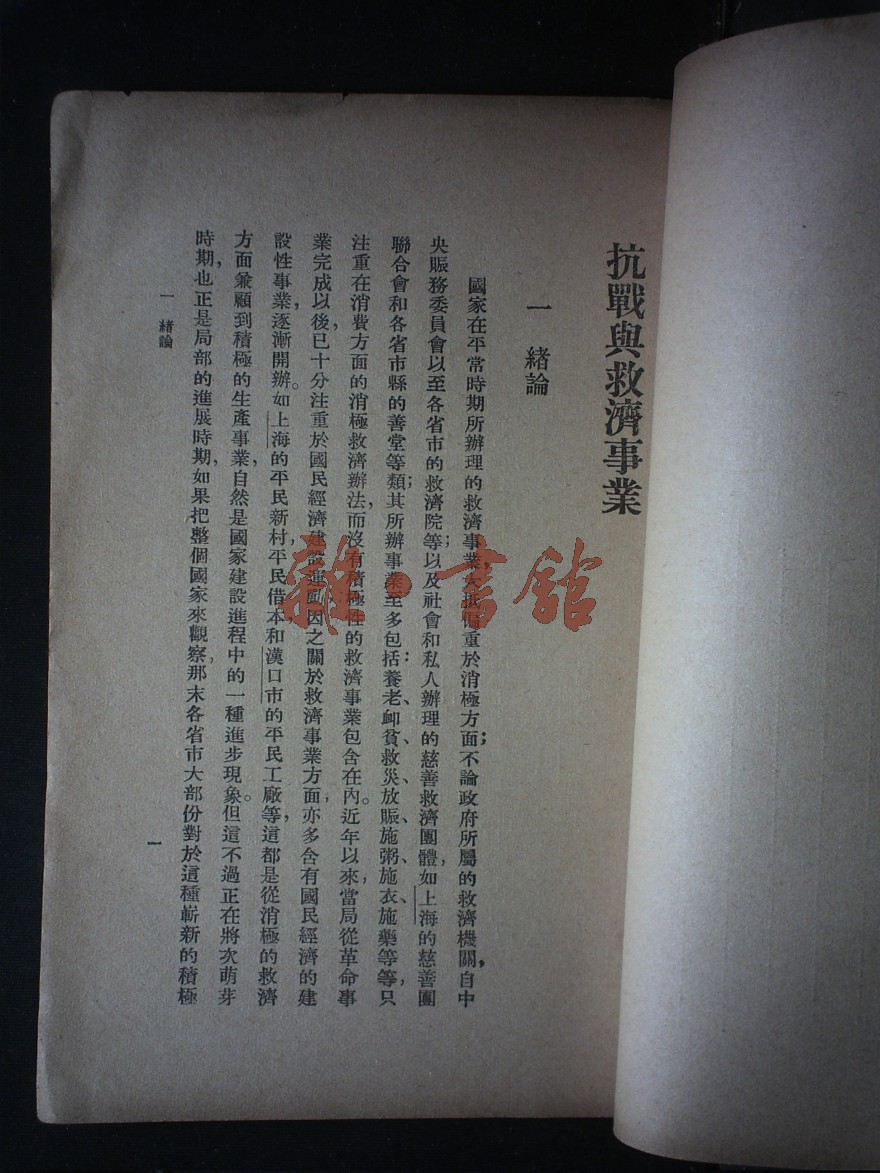 抗戰與救濟事業
一 緒論
國家在平常時期所辦理的救濟事業,大抵偏重於消極方面;不論政府所屬的救濟機關,自中
央賑務委員會以至各省市的救濟院等;以及社會和私人辦理的慈善救濟團體,如上海的慈善團
聯合會和各省市縣的善堂等類;其所辦事業至多包括:養老、卹貧、救災、放賑、施粥、施衣、施藥等等,只
注重在消費方面的消極救濟辦法,而沒有積極性的救濟事業包含在內。近年以來,當局從革命事
業完成以後,已十分注重於國民經濟建設運動,因之關於救濟事業方面,亦多含有國民經濟的建
設性事業,逐漸開辦。如上海的平民新村,平民借本,和漢口市的平民工廠等,這都是從消極的救濟
方面兼顧到積極的生產事業,自然是國家建設進程中的一種進步現象。但這不過正在將次萌芽
時期,也正是局部的進展時期,如果把整個國家來觀察,那末各省市大部份對於這種嶄新的積極
一 緒論
一
雜·書館